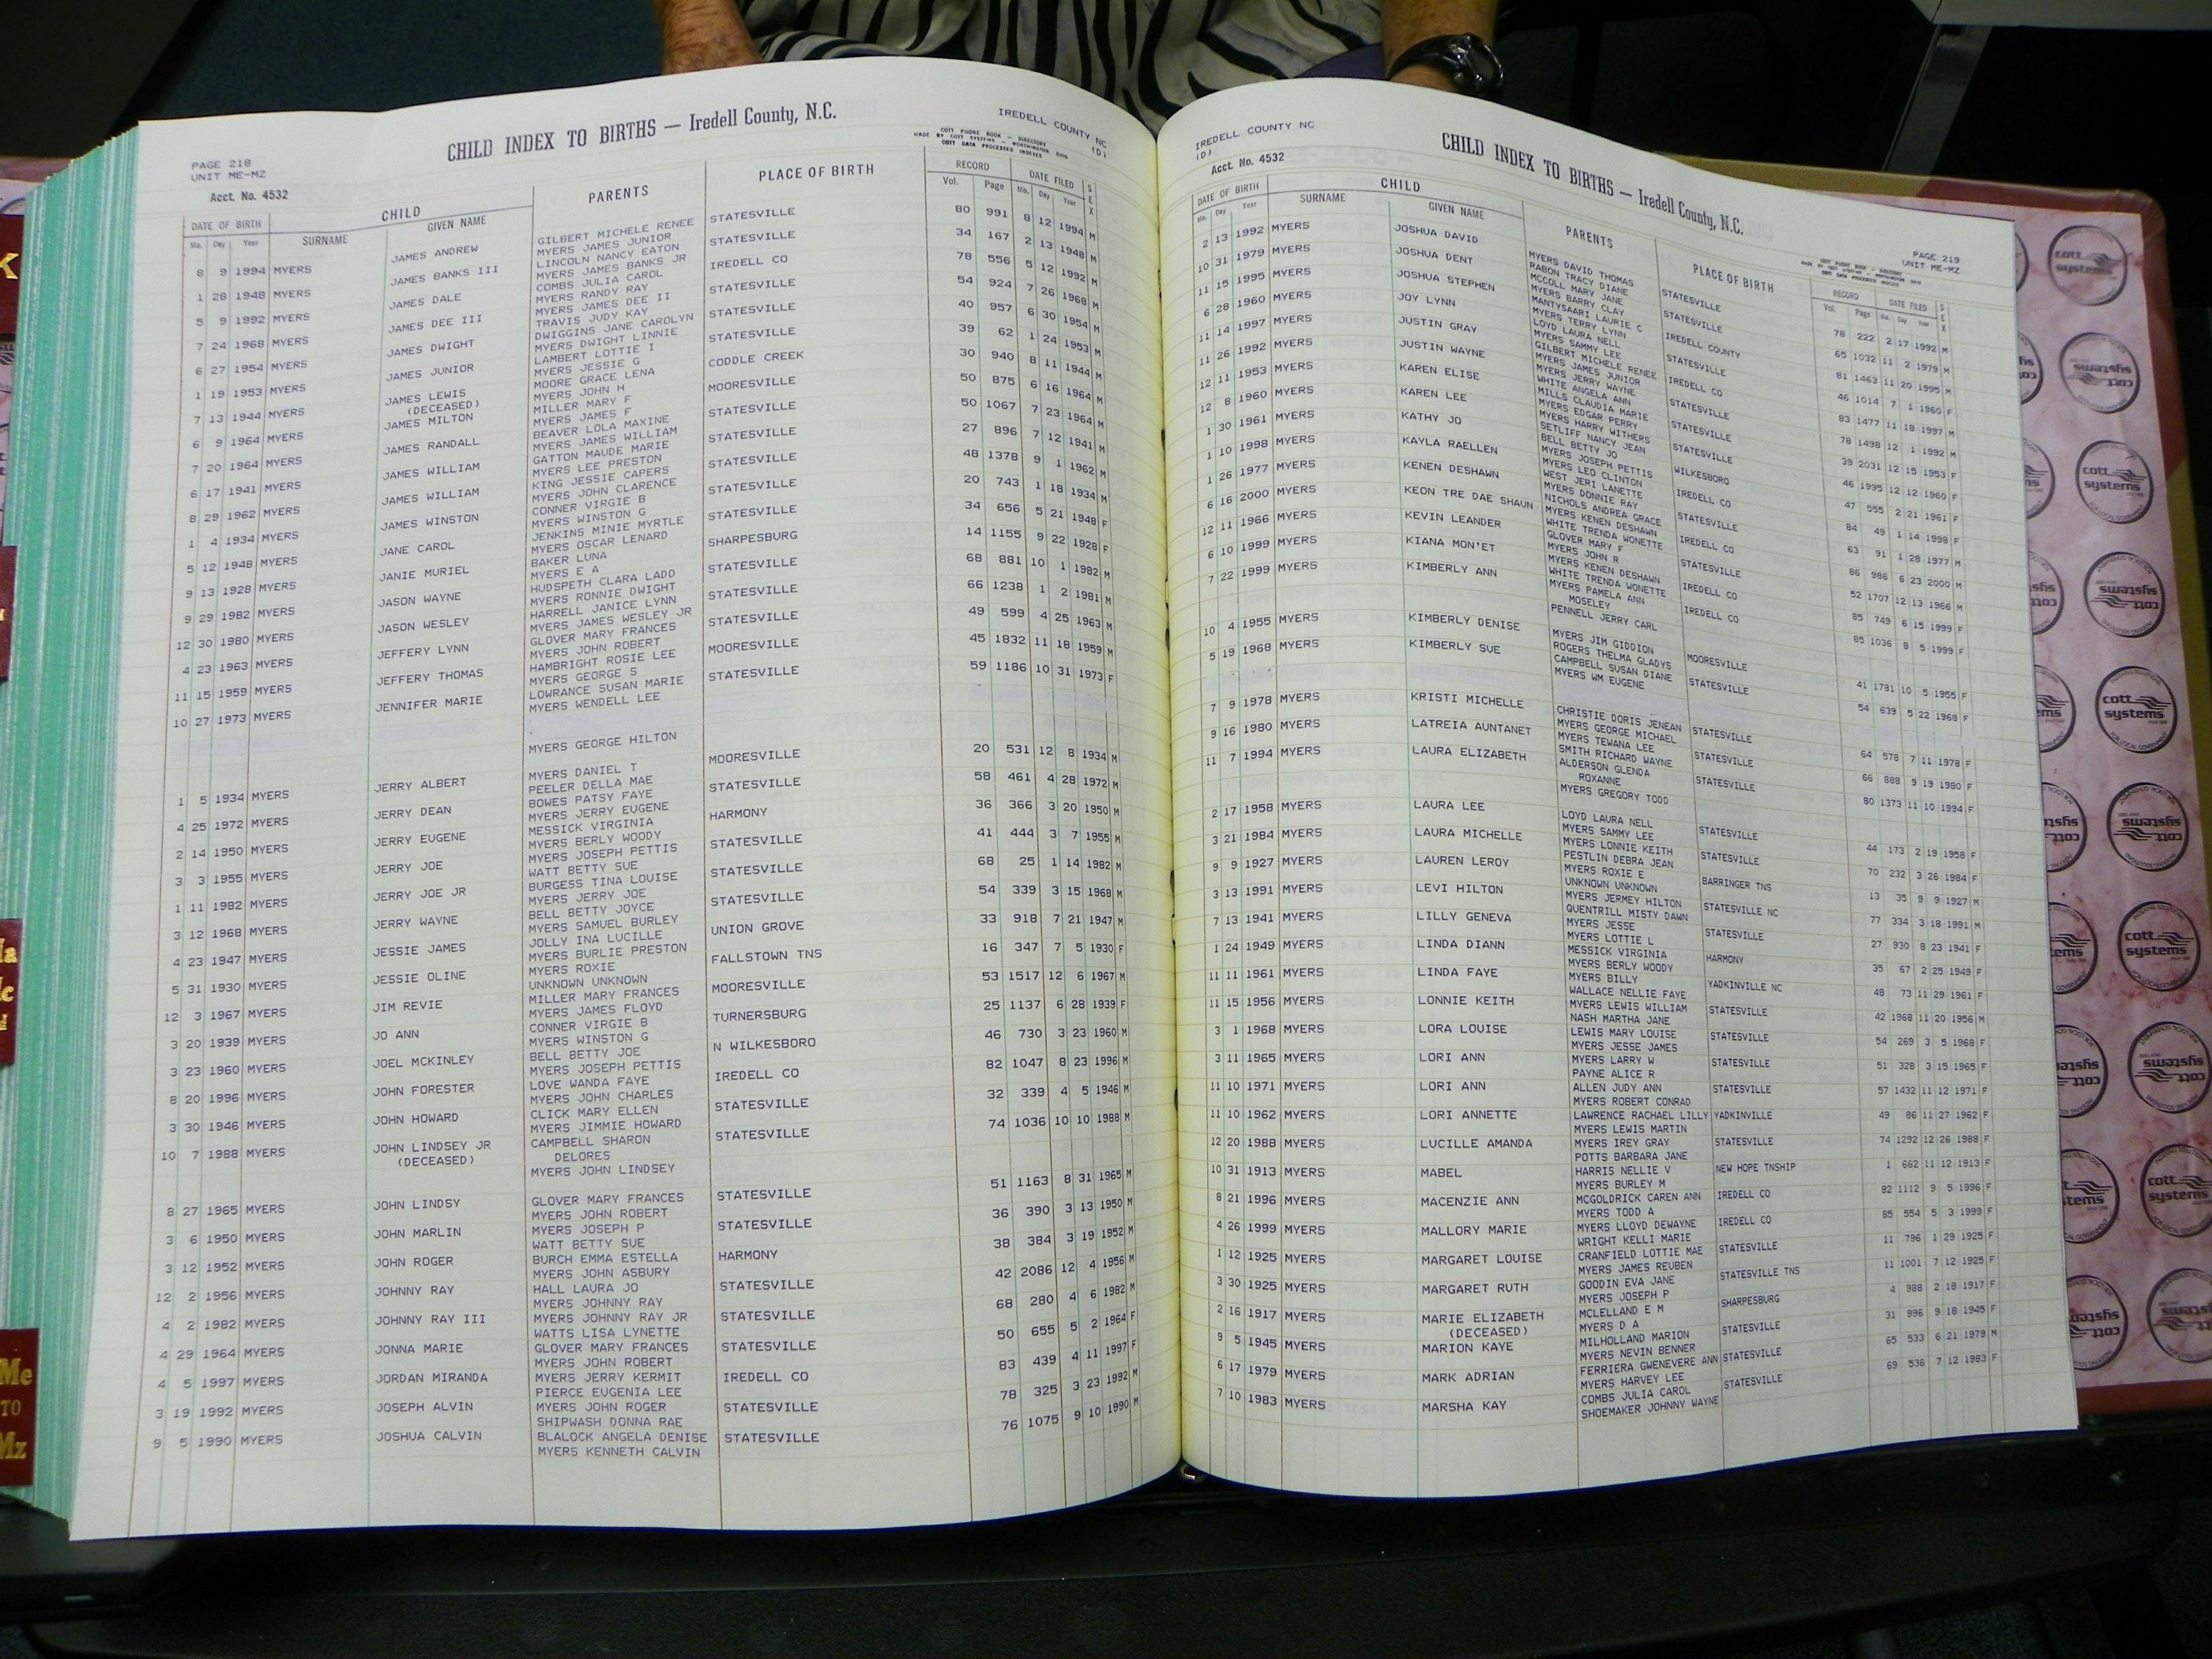 CHILD INDEX TO BIRTHS — Iredell County, N.C.
IREDELL COUNTY NC
(D)
COTT PHONE BOOK - DIRECTORY
MADE BY COTT SYSTEMS - WORTHINGTON OHIO
COTT DATA PROCESSED INDEXES
PAGE 218
UNIT ME-MZ
Acct. No. 4532
DATE OF BIRTH CHILD PARENTS PLACE OF BIRTH RECORD DATE FILED SEX
Mo. Day Year SURNAME GIVEN NAME Vol. Page Mo. Day Year
8 9 1994 MYERS JAMES ANDREW GILBERT MICHELE RENEE STATESVILLE 80 991 8 12 1994 M
MYERS JAMES JUNIOR
1 28 1948 MYERS JAMES BANKS III LINCOLN NANCY EATON STATESVILLE 34 167 2 13 1948 M
MYERS JAMES BANKS JR
5 9 1992 MYERS JAMES DALE COMBS JULIA CAROL IREDELL CO 78 556 5 12 1992 M
MYERS RANDY RAY
7 24 1968 MYERS JAMES DEE III MYERS JAMES DEE II STATESVILLE 54 924 7 26 1968 M
TRAVIS JUDY KAY
6 27 1954 MYERS JAMES DWIGHT DWIGGINS JANE CAROLYN STATESVILLE 40 957 6 30 1954 M
MYERS DWIGHT LINNIE
1 19 1953 MYERS JAMES JUNIOR LAMBERT LOTTIE I STATESVILLE 39 62 1 24 1953 M
MYERS JESSIE G
7 13 1944 MYERS JAMES LEWIS MOORE GRACE LENA CODDLE CREEK 30 940 8 11 1944 M
(DECEASED) MYERS JOHN H
6 9 1964 MYERS JAMES MILTON MILLER MARY F MOORESVILLE 50 875 6 16 1964 M
MYERS JAMES F
7 20 1964 MYERS JAMES RANDALL BEAVER LOLA MAXINE STATESVILLE 50 1067 7 23 1964 M
MYERS JAMES WILLIAM
6 17 1941 MYERS JAMES WILLIAM GATTON MAUDE MARIE STATESVILLE 27 896 7 12 1941 M
MYERS LEE PRESTON
8 29 1962 MYERS JAMES WILLIAM KING JESSIE CAPERS STATESVILLE 48 1378 9 1 1962 M
MYERS JOHN CLARENCE
1 4 1934 MYERS JAMES WINSTON CONNER VIRGIE B STATESVILLE 20 743 1 18 1934 M
MYERS WINSTON G
5 12 1948 MYERS JANE CAROL JENKINS MINIE MYRTLE STATESVILLE 34 656 5 21 1948 F
MYERS OSCAR LENARD
9 13 1928 MYERS JANIE MURIEL BAKER LUNA SHARPESBURG 14 1155 9 22 1928 F
MYERS E A
9 29 1982 MYERS JASON WAYNE HUDSPETH CLARA LADD STATESVILLE 68 881 10 1 1982 M
MYERS RONNIE DWIGHT
12 30 1980 MYERS JASON WESLEY HARRELL JANICE LYNN STATESVILLE 66 1238 1 2 1981 M
MYERS JAMES WESLEY JR
4 23 1963 MYERS JEFFERY LYNN GLOVER MARY FRANCES STATESVILLE 49 599 4 25 1963 M
MYERS JOHN ROBERT
11 15 1959 MYERS JEFFERY THOMAS HAMBRIGHT ROSIE LEE MOORESVILLE 45 1832 11 18 1959 M
MYERS GEORGE S
10 27 1973 MYERS JENNIFER MARIE LOWRANCE SUSAN MARIE STATESVILLE 59 1186 10 31 1973 F
MYERS WENDELL LEE
MYERS GEORGE HILTON
1 5 1934 MYERS JERRY ALBERT MYERS DANIEL T MOORESVILLE 20 531 12 8 1934 M
PEELER DELLA MAE
4 25 1972 MYERS JERRY DEAN BOWES PATSY FAYE STATESVILLE 58 461 4 28 1972 M
MYERS JERRY EUGENE
2 14 1950 MYERS JERRY EUGENE MESSICK VIRGINIA HARMONY 36 366 3 20 1950 M
MYERS BERLY WOODY
3 3 1955 MYERS JERRY JOE MYERS JOSEPH PETTIS STATESVILLE 41 444 3 7 1955 M
WATT BETTY SUE
1 11 1982 MYERS JERRY JOE JR BURGESS TINA LOUISE STATESVILLE 68 25 1 14 1982 M
MYERS JERRY JOE
3 12 1968 MYERS JERRY WAYNE BELL BETTY JOYCE STATESVILLE 54 339 3 15 1968 M
MYERS SAMUEL BURLEY
4 23 1947 MYERS JESSIE JAMES JOLLY INA LUCILLE UNION GROVE 33 918 7 21 1947 M
MYERS BURLIE PRESTON
5 31 1930 MYERS JESSIE OLINE MYERS ROXIE FALLSTOWN TNS 16 347 7 5 1930 F
UNKNOWN UNKNOWN
12 3 1967 MYERS JIM REVIE MILLER MARY FRANCES MOORESVILLE 53 1517 12 6 1967 M
MYERS JAMES FLOYD
3 20 1939 MYERS JO ANN CONNER VIRGIE B TURNERSBURG 25 1137 6 28 1939 F
MYERS WINSTON G
3 23 1960 MYERS JOEL MCKINLEY BELL BETTY JOE N WILKESBORO 46 730 3 23 1960 M
MYERS JOSEPH PETTIS
8 20 1996 MYERS JOHN FORESTER LOVE WANDA FAYE IREDELL CO 82 1047 8 23 1996 M
MYERS JOHN CHARLES
3 30 1946 MYERS JOHN HOWARD CLICK MARY ELLEN STATESVILLE 32 339 4 5 1946 M
MYERS JIMMIE HOWARD
10 7 1988 MYERS JOHN LINDSEY JR CAMPBELL SHARON STATESVILLE 74 1036 10 10 1988 M
(DECEASED) DELORES
MYERS JOHN LINDSEY
8 27 1965 MYERS JOHN LINDSY GLOVER MARY FRANCES STATESVILLE 51 1163 8 31 1965 M
MYERS JOHN ROBERT
3 6 1950 MYERS JOHN MARLIN MYERS JOSEPH P STATESVILLE 36 390 3 13 1950 M
WATT BETTY SUE
3 12 1952 MYERS JOHN ROGER BURCH EMMA ESTELLA HARMONY 38 384 3 19 1952 M
MYERS JOHN ASBURY
12 2 1956 MYERS JOHNNY RAY HALL LAURA JO STATESVILLE 42 2086 12 4 1956 M
MYERS JOHNNY RAY
4 2 1982 MYERS JOHNNY RAY III MYERS JOHNNY RAY JR STATESVILLE 68 280 4 6 1982 M
WATTS LISA LYNETTE
4 29 1964 MYERS JONNA MARIE GLOVER MARY FRANCES STATESVILLE 50 655 5 2 1964 F
MYERS JOHN ROBERT
4 5 1997 MYERS JORDAN MIRANDA MYERS JERRY KERMIT IREDELL CO 83 439 4 11 1997 F
PIERCE EUGENIA LEE
3 19 1992 MYERS JOSEPH ALVIN MYERS JOHN ROGER STATESVILLE 78 325 3 23 1992 M
SHIPWASH DONNA RAE
9 5 1990 MYERS JOSHUA CALVIN BLALOCK ANGELA DENISE STATESVILLE 76 1075 9 10 1990 M
MYERS KENNETH CALVIN
IREDELL COUNTY NC
(D)
Acct. No. 4532
CHILD INDEX TO BIRTHS — Iredell County, N.C.
PAGE 219
UNIT ME-MZ
COTT PHONE BOOK - DIRECTORY
MADE BY COTT SYSTEMS - WORTHINGTON OHIO
COTT DATA PROCESSED INDEXES
DATE OF BIRTH CHILD PARENTS PLACE OF BIRTH RECORD DATE FILED SEX
Mo. Day Year SURNAME GIVEN NAME Vol. Page Mo. Day Year
2 13 1992 MYERS JOSHUA DAVID MYERS DAVID THOMAS STATESVILLE 78 222 2 17 1992 M
RABON TRACY DIANE
10 31 1979 MYERS JOSHUA DENT MCCOLL MARY JANE STATESVILLE 65 1032 11 2 1979 M
MYERS BARRY CLAY
11 15 1995 MYERS JOSHUA STEPHEN MANTYSAARI LAURIE C IREDELL COUNTY 81 1463 11 20 1995 M
MYERS TERRY LYNN
6 28 1960 MYERS JOY LYNN LOYD LAURA NELL STATESVILLE 46 1014 7 1 1960 F
MYERS SAMMY LEE
11 14 1997 MYERS JUSTIN GRAY GILBERT MICHELE RENEE IREDELL CO 83 1477 11 18 1997 M
MYERS JAMES JUNIOR
11 26 1992 MYERS JUSTIN WAYNE MYERS JERRY WAYNE STATESVILLE 78 1498 12 1 1992 M
WHITE ANGELA ANN
12 11 1953 MYERS KAREN ELISE MILLS CLAUDIA MARIE STATESVILLE 39 2031 12 15 1953 F
MYERS EDGAR PERRY
12 8 1960 MYERS KAREN LEE MYERS HARRY WITHERS WILKESBORO 46 1995 12 12 1960 F
SETLIFF NANCY JEAN
1 30 1961 MYERS KATHY JO BELL BETTY JO IREDELL CO 47 555 2 21 1961 F
MYERS JOSEPH PETTIS
1 10 1998 MYERS KAYLA RAELLEN MYERS LEO CLINTON STATESVILLE 84 49 1 14 1998 F
WEST JERI LANETTE
1 26 1977 MYERS KENEN DESHAWN MYERS DONNIE RAY IREDELL CO 63 91 1 28 1977 M
NICHOLS ANDREA GRACE
6 16 2000 MYERS KEON TRE DAE SHAUN MYERS KENEN DESHAWN STATESVILLE 86 986 6 23 2000 M
WHITE TRENDA WONETTE
12 11 1966 MYERS KEVIN LEANDER GLOVER MARY F IREDELL CO 52 1707 12 13 1966 M
MYERS JOHN R
6 10 1999 MYERS KIANA MON'ET MYERS KENEN DESHAWN IREDELL CO 85 749 6 15 1999 F
WHITE TRENDA WONETTE
7 22 1999 MYERS KIMBERLY ANN MYERS PAMELA ANN 85 1036 8 5 1999 F
MOSELEY
PENNELL JERRY CARL
10 4 1955 MYERS KIMBERLY DENISE MYERS JIM GIDDION MOORESVILLE 41 1781 10 5 1955 F
ROGERS THELMA GLADYS
5 19 1968 MYERS KIMBERLY SUE CAMPBELL SUSAN DIANE STATESVILLE 54 639 5 22 1968 F
MYERS WM EUGENE
7 9 1978 MYERS KRISTI MICHELLE CHRISTIE DORIS JENEAN STATESVILLE 64 578 7 11 1978 F
MYERS GEORGE MICHAEL
9 16 1980 MYERS LATREIA AUNTANET MYERS TEWANA LEE STATESVILLE 66 888 9 19 1980 F
SMITH RICHARD WAYNE
11 7 1994 MYERS LAURA ELIZABETH ALDERSON GLENDA 80 1373 11 10 1994 F
ROXANNE
MYERS GREGORY TODD
2 17 1958 MYERS LAURA LEE LOYD LAURA NELL STATESVILLE 44 173 2 19 1958 F
MYERS SAMMY LEE
3 21 1984 MYERS LAURA MICHELLE MYERS LONNIE KEITH STATESVILLE 70 232 3 26 1984 F
PESTLIN DEBRA JEAN
9 9 1927 MYERS LAUREN LEROY MYERS ROXIE E BARRINGER TNS 13 35 9 9 1927 M
UNKNOWN UNKNOWN
3 13 1991 MYERS LEVI HILTON MYERS JERMEY HILTON STATESVILLE NC 77 334 3 18 1991 M
QUENTRILL MISTY DAWN
7 13 1941 MYERS LILLY GENEVA MYERS JESSE STATESVILLE 27 930 8 23 1941 F
MYERS LOTTIE L
1 24 1949 MYERS LINDA DIANN MESSICK VIRGINIA HARMONY 35 67 2 25 1949 F
MYERS BERLY WOODY
11 11 1961 MYERS LINDA FAYE MYERS BILLY YADKINVILLE NC 48 73 11 29 1961 F
WALLACE NELLIE FAYE
11 15 1956 MYERS LONNIE KEITH MYERS LEWIS WILLIAM STATESVILLE 42 1968 11 20 1956 M
NASH MARTHA JANE
3 1 1968 MYERS LORA LOUISE LEWIS MARY LOUISE STATESVILLE 54 269 3 5 1968 F
MYERS JESSE JAMES
3 11 1965 MYERS LORI ANN MYERS LARRY W STATESVILLE 51 328 3 15 1965 F
PAYNE ALICE R
11 10 1971 MYERS LORI ANN ALLEN JUDY ANN STATESVILLE 57 1432 11 12 1971 F
MYERS ROBERT CONRAD
11 10 1962 MYERS LORI ANNETTE LAWRENCE RACHAEL LILLY YADKINVILLE 49 86 11 27 1962 F
MYERS LEWIS MARTIN
12 20 1988 MYERS LUCILLE AMANDA MYERS IREY GRAY STATESVILLE 74 1292 12 26 1988 F
POTTS BARBARA JANE
10 31 1913 MYERS MABEL HARRIS NELLIE V NEW HOPE TNSHIP 1 662 11 12 1913 F
MYERS BURLEY M
8 21 1996 MYERS MACENZIE ANN MCGOLDRICK CAREN ANN IREDELL CO 82 1112 9 5 1996 F
MYERS TODD A
4 26 1999 MYERS MALLORY MARIE MYERS LLOYD DEWAYNE IREDELL CO 85 554 5 3 1999 F
WRIGHT KELLI MARIE
1 12 1925 MYERS MARGARET LOUISE CRANFIELD LOTTIE MAE STATESVILLE 11 796 1 29 1925 F
MYERS JAMES REUBEN
3 30 1925 MYERS MARGARET RUTH GOODIN EVA JANE STATESVILLE TNS 11 1001 7 12 1925 F
MYERS JOSEPH P
2 16 1917 MYERS MARIE ELIZABETH MCLELLAND E M SHARPESBURG 4 988 2 18 1917 F
(DECEASED) MYERS D A
9 5 1945 MYERS MARION KAYE MILHOLLAND MARION STATESVILLE 31 996 9 18 1945 F
MYERS NEVIN BENNER
6 17 1979 MYERS MARK ADRIAN FERRIERA GWENEVERE ANN STATESVILLE 65 533 6 21 1979 M
MYERS HARVEY LEE
7 10 1983 MYERS MARSHA KAY COMBS JULIA CAROL STATESVILLE 69 536 7 12 1983 F
SHOEMAKER JOHNNY WAYNE
Me
TO
Mz
cott
systems